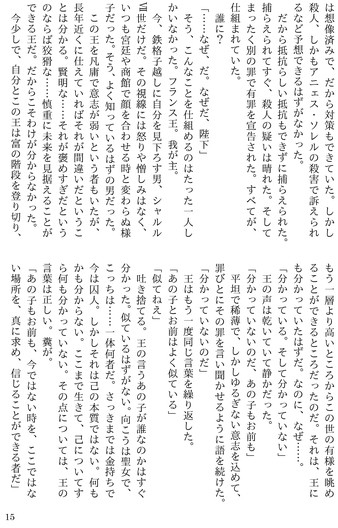 は想像済みで、だから対策もできていた。しかし
殺人、しかもアニエス・ソレルの殺害で訴えられ
るなど予想できるはずがなかった。
だから抵抗らしい抵抗もできずに捕らえられた。
捕らえられてすぐ、殺人の疑いは晴れた。そして
まったく別の罪で有罪を宣告された。すべてが、
仕組まれていた。
誰に?
「……なぜ、だ。なぜだ、陛下」
そう、こんなことを仕組めるのはたった一人し
かいなかった。フランス王。我が主。
今、鉄格子越しに自分を見下ろす男、シャルル
Ⅶ世だけだ。その視線には怒りや憎しみはなく、
いつも宮廷や商館で顔を合わせる時と変わらぬ様
子だった。そう、よく知っているはずの男だった。
この王を凡庸で意志が弱いという者もいたが、
長年近くに仕えていればそれが間違いだというこ
とは分かる。賢明な――それが褒めすぎだという
のならば狡猾な……慎重に未来を見据えることが
できる王だ。だからこそわけが分からなかった。
今少しで、自分とこの王は富の階段を登り切り、
もう一層より高いところからこの世の有様を眺め
ることができるところだったのだ。それは、王に
も分かっていたはずだ。なのに、なぜ……。
「分かっている。そして分かっていない」
王の声は乾いていて静かだった。
「分かっていないのだ、あの子もお前も」
平坦で稀薄で、しかしゆるぎない意志を込めて、
罪びとにその罪を言い聞かせるように語を続けた。
「分かっていないのだ」
王はもう一度同じ言葉を繰り返した。
「あの子とお前はよく似ている」
「似てねえ」
吐き捨てる。王の言うあの子が誰なのかはすぐ
分かった。似ているはずがない。向こうは聖女で、
こっちは……一体何者だ。さっきまでは金持ちで
今は囚人。しかしそれは己の本質ではない。何も
かも分からない。ここまで生きて、己についてす
ら何も分かっていない。その点については、王の
言葉は正しい。糞が。
「あの子もお前も、今ではない時を、ここではな
い場所を、真に求め、信じることができる者だ」
15